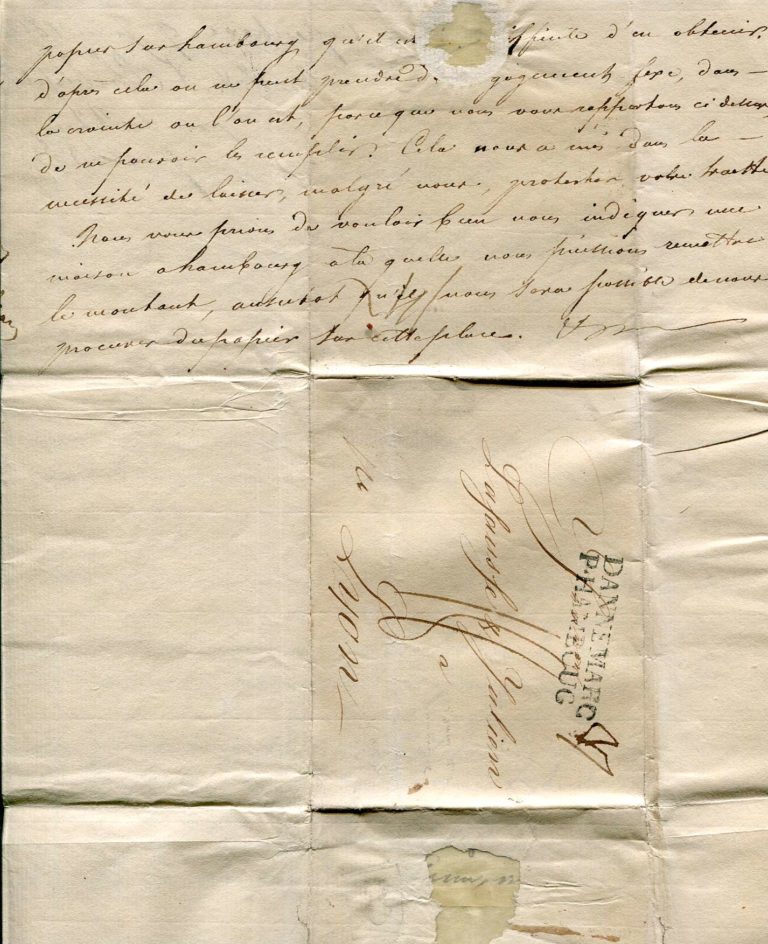 papier sur hambourg, qu'il est difficile d'en obtenir.
d'après cela on ne peut prendre d' gagements fixe, dans
la crainte ou l'on est, parce que nous vous rapportons ci dessus,
de ne pouvoir les remplir. Cela nous a mis dans la
necessité de laisser, malgré nous, protester votre traitte
Nous vous prions de vouloir bien nous indiquer une
maison a hambourg à la quelle nous puissions remettre
le montant, aussitot qu'il nous sera possible de nous
procurer du papier sur cette place.
DANNEMARC
P.HAMBOUG
Lafausse & Julien
a
Lyon